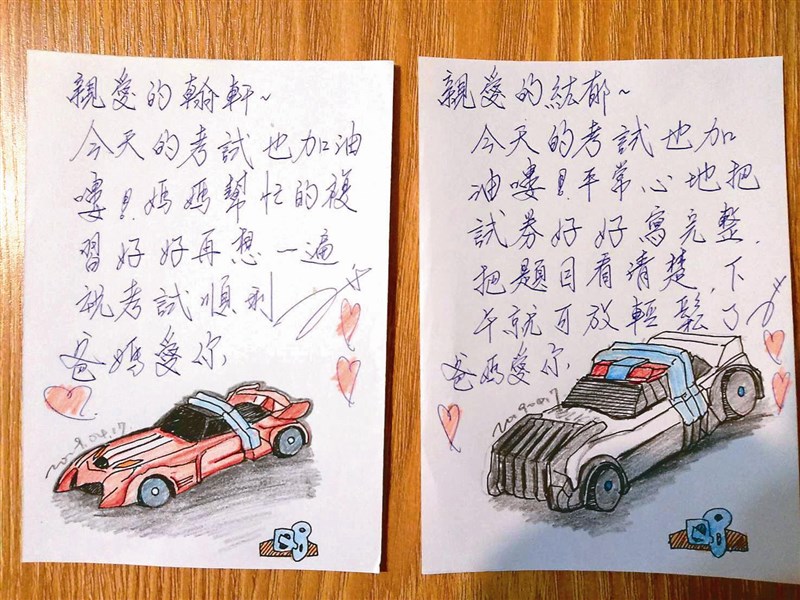 親愛的翰軒~
今天的考試也加油
嘍!媽媽幫忙的複
習好好再想一遍
祝考試順利
爸媽愛你
2019.04.17.
親愛的紘郁~
今天的考試也加
油嘍!平常心地把
試券好好寫完整,
把題目看清楚,下
午就可放輕鬆了
爸媽愛你